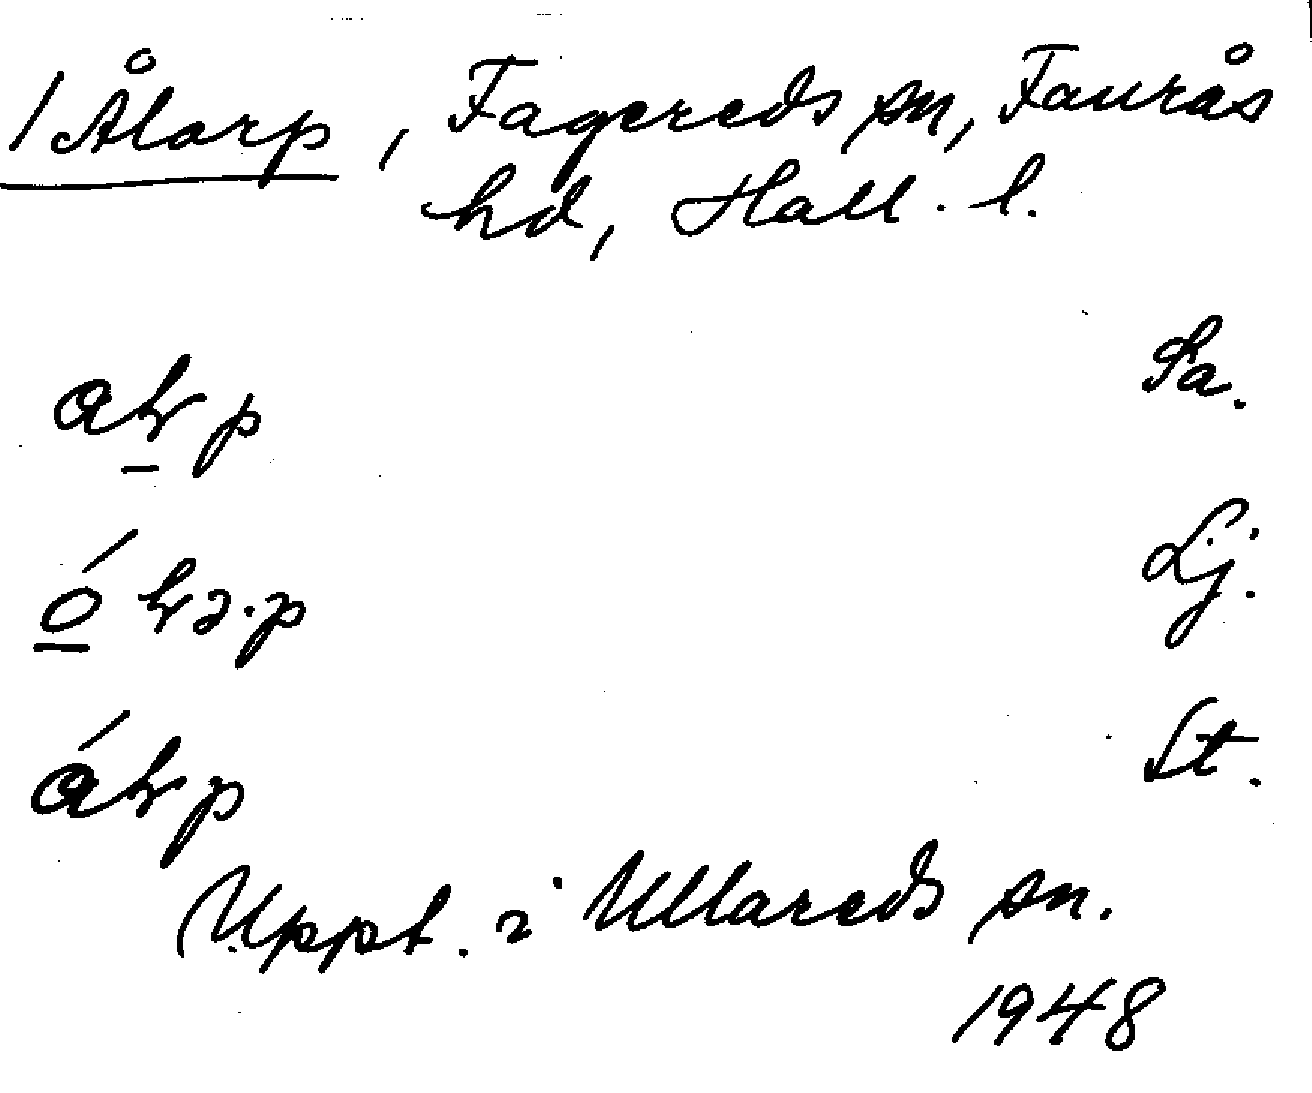 /Ålarp, Fagereds sn, Faurås
hd, Hall. l.
Sa.
Lj.
St.
Uppt. i Ullareds sn.
1948